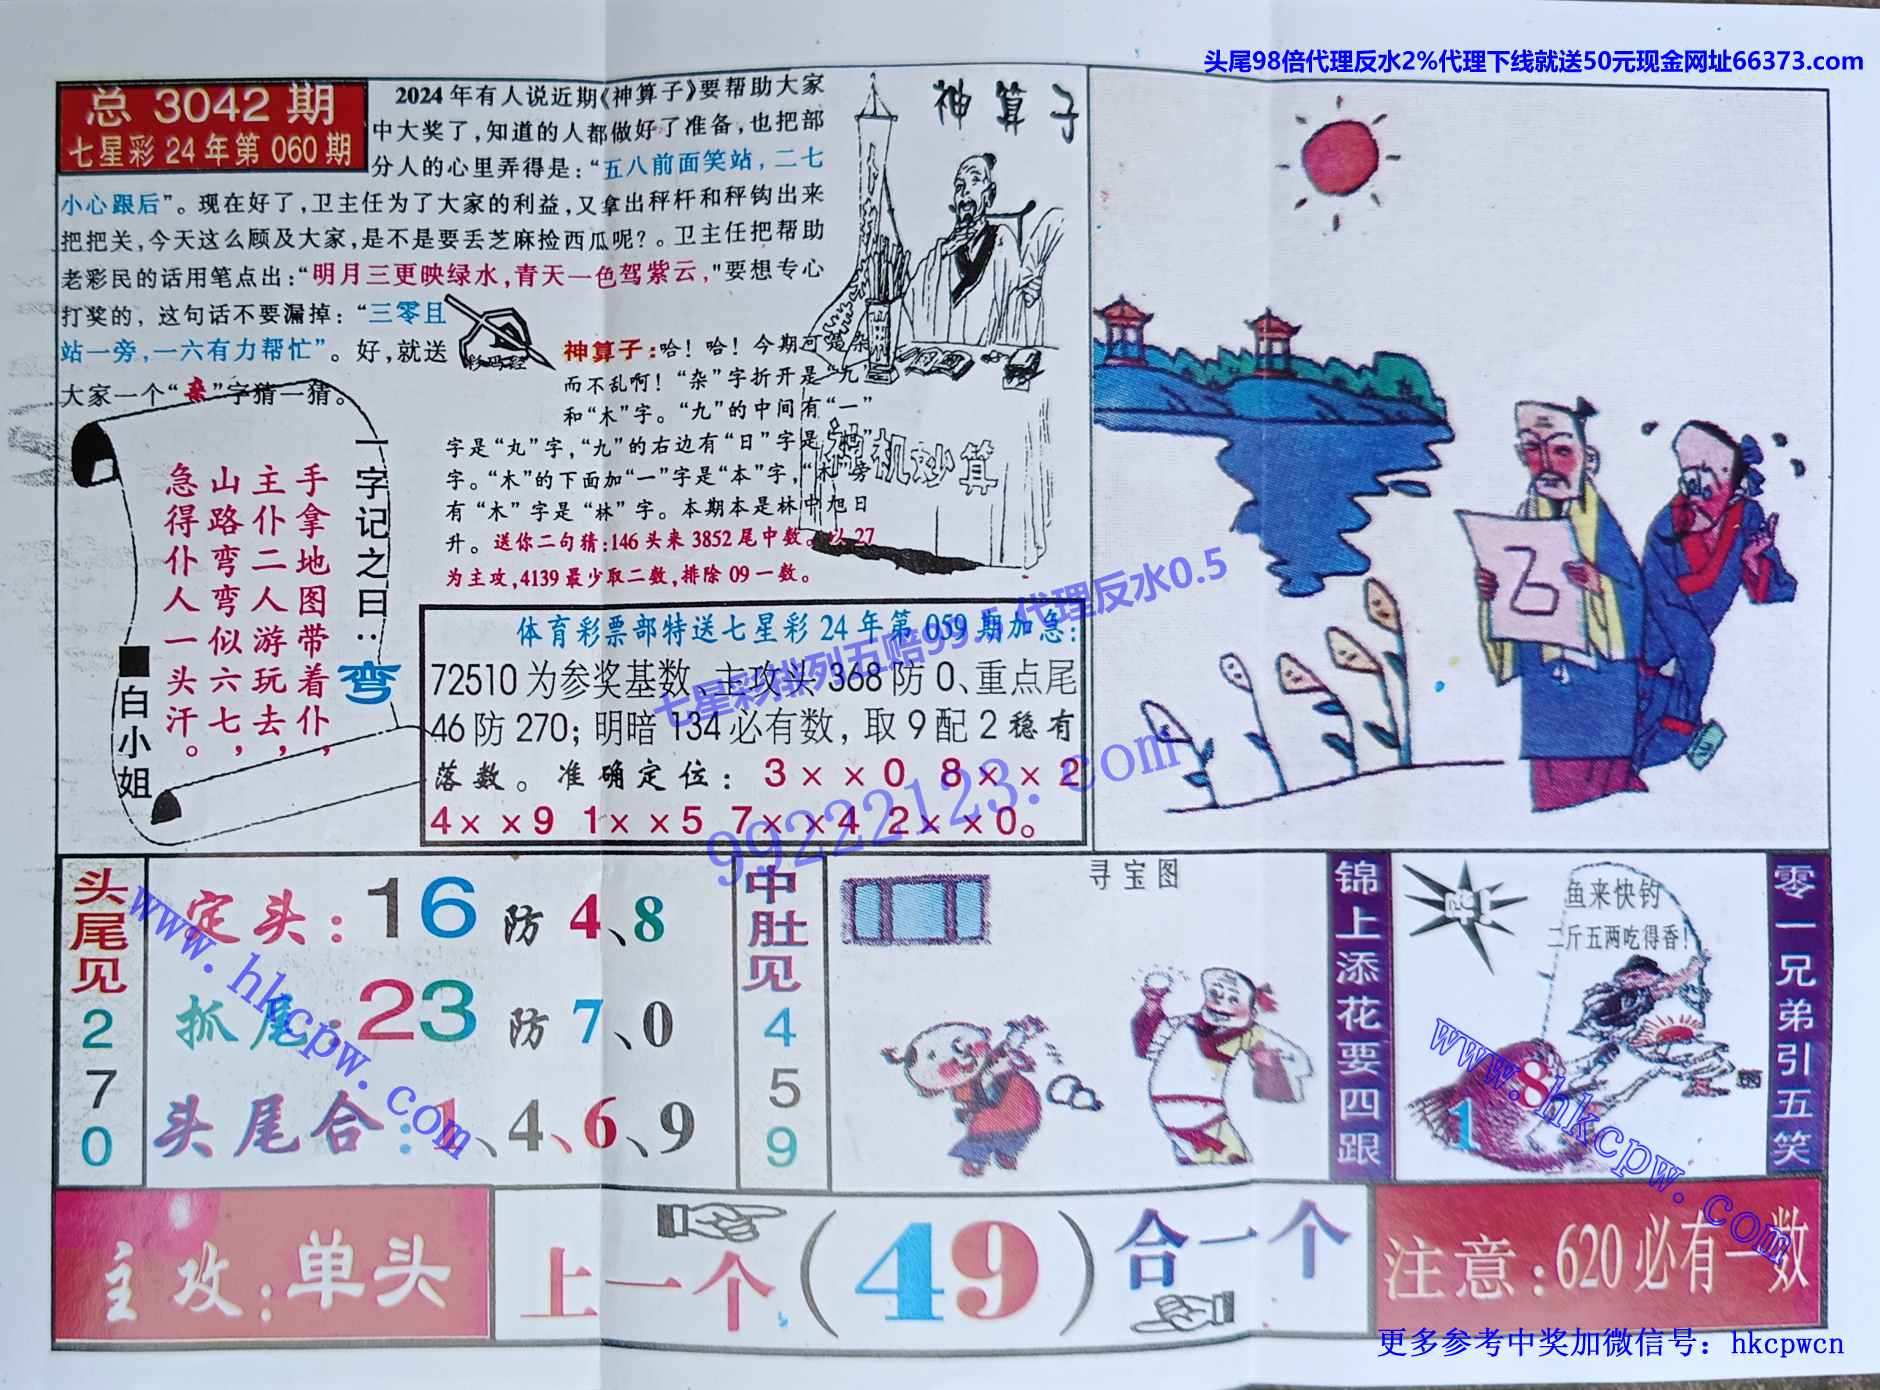 头尾98倍代理反水2%代理下线就送50元现金网址66373.com
总 3042 期
七星彩 24 年第 060 期
2024 年有人说近期《神算子》要帮助大家
中大奖了，知道的人都做好了准备，也把部
分人的心里弄得是：“五八前面笑站，二七
小心跟后”。现在好了，卫主任为了大家的利益，又拿出秤杆和秤钩出来
把把关，今天这么顾及大家，是不是要丢芝麻捡西瓜呢？。卫主任把帮助
老彩民的话用笔点出：“明月三更映绿水，青天一色驾紫云，”要想专心
打奖的，这句话不要漏掉：“三零且
站一旁，一六有力帮忙”。好，就送
大家一个“杂”字猜一猜。
神算子
神机妙算
神算子：哈！哈！今期可是杂
而不乱啊！“杂”字折开是“九”
和“木”字。“九”的中间有“一”
字是“丸”字，“九”的右边有“日”字是“旭”
字。“木”的下面加“一”字是“本”字，“木”旁
有“木”字是“林”字。本期本是林中旭日
升。送你二句猜：146 头来 3852 尾中数。以 27
为主攻，4139 最少取二数，排除 09 一数。
一字记之曰：弯
手拿地图带着仆，
主仆二人游玩去，
山路弯弯似六七，
急得仆人一头汗。
■白小姐
体育彩票部特送七星彩 24 年第 059 期加急：
72510 为参奖基数、主攻头 368 防 0、重点尾
46 防 270；明暗 134 必有数，取 9 配 2 稳有
落数。准确定位：3××0 8××2
4××9 1××5 7××4 2××0。
七星彩排列五赔99.5 代理反水0.5
99222123.com
己
头尾见270
定头：16 防 4、8
抓尾：23 防 7、0
头尾合：1、4、6、9
www.hkcpw.com
中肚见459
寻宝图
锦上添花要四跟
鱼来快钓
二斤五两吃得香！
8
1
www.hkcpw.com
零一兄弟引五笑
主攻：单头
上一个（49）合一个
注意：620 必有一数
更多参考中奖加微信号：hkcpwcn